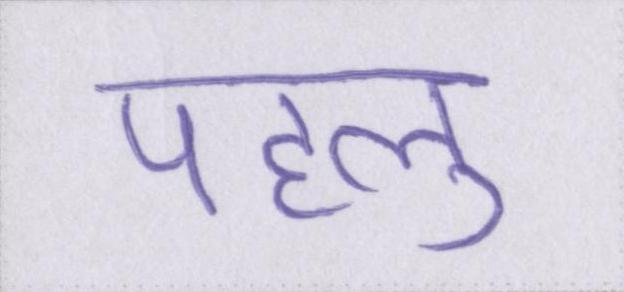 पहलु